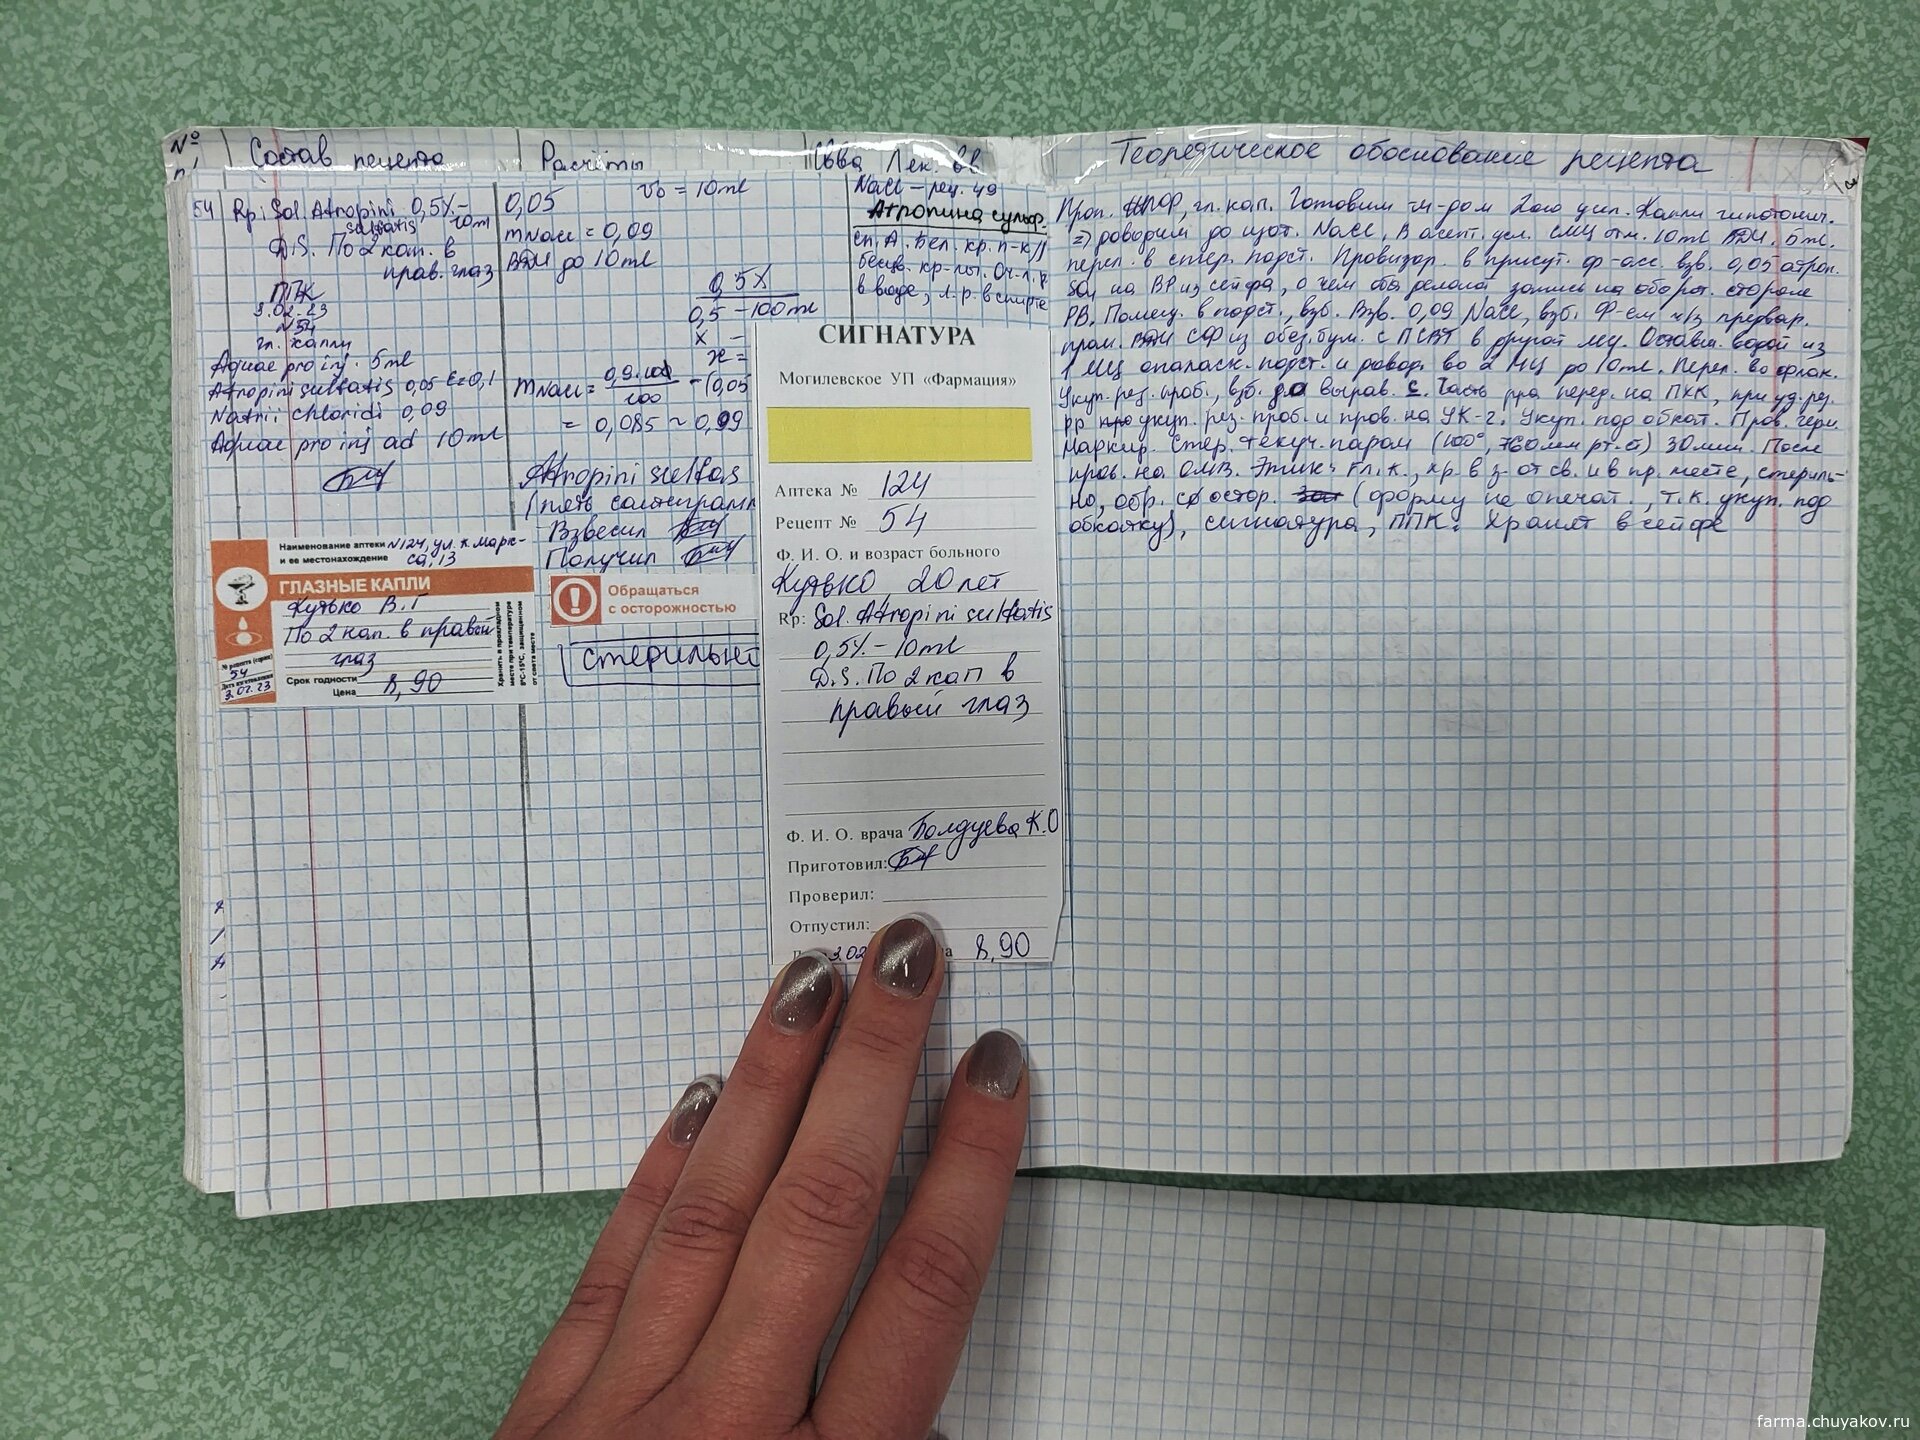 №
Состав рецепта
Расчёты
Св-ва Лек. вв
Теоретическое обоснование рецепта
54
Rp: Sol. Atropini 0,5% -
sulfatis 10ml
D.S. По 2 кап. в
прав. глаз
ППК
3.02.23
№54
гл. капли
Aquae pro inj. 5ml
Atropini sulfatis 0,05 E=0,1
Natrii chloridi 0,09
Aquae pro inj ad 10ml
0,05
V0 = 10ml
mNaCl = 0,09
ВДИ до 10ml
0,5%
0,5 - 100ml
x -
x =
mNaCl = 0,9·100/100 - (0,05
= 0,085 ~ 0,09
Atropini sulfas
(пять сантиграмм
Взвесил
Получил
NaCl - рец. 49
Атропина сульф.
Сп. А. Бел. кр. п-к //
бесцв. кр-лы. Оч. л. р.
в воде, л. р. в спирте
Наименование аптеки №124, ул. К. Марк-
и ее местонахождение са, 13
ГЛАЗНЫЕ КАПЛИ
Кутько В.Г
По 2 кап. в правый
глаз
№ рецепта (серия)
54
Дата изготовления
3.02.23
Срок годности
Цена 8,90
Хранить в прохладном
месте при температуре
8°С-15°С, защищенном
от света месте
Обращаться
с осторожностью
СИГНАТУРА
Могилевское УП «Фармация»
Аптека № 124
Рецепт № 54
Ф. И. О. и возраст больного
Кутько, 20 лет
Rp: Sol. Atropini sulfatis
0,5% - 10ml
D.S. По 2 кап в
правый глаз
Ф. И. О. врача Болдуева К.О
Приготовил:
Проверил:
Отпустил:
3.02
8,90
Проп. ПРФ, гл. кап. Готовим м-дом 2ого цил. Капли гипотонич.
=> доводим до изот. NaCl. В асепт. усл. СМЦ отм. 10ml ВДИ. 5ml.
перел. в стер. подст. Провизор. в присут. ф-асс. взв. 0,05 атроп.
SO4 на ВР из сейфа, о чем оба делают запись на оборот. стороне
РВ. Помещ. в подст., взб. Взв. 0,09 NaCl, взб. Ф-ем ч/з предвар.
пром. ВДИ СФ из обез. бум. с ПСВТ в другой МЦ. Оставш. водой из
1 МЦ опаласк. подст. и довод. во 2 МЦ до 10ml. Перел. во флак.
Укуп. рез. проб., взб. до вырав. C. Часть р-ра перед. на ПХК, при уд. рез.
р-р укуп. рез. проб. и пров. на УК-2. Укуп. под обкат. Пров. герм.
Маркир. Стер. текуч. паром (100°, 760 мм рт. ст) 30 мин. После
пров. на ОМВ. Этик: гл. к., хр. в з. от св. и в пр. месте, стериль-
но, обр. с остор. (форму не опечат., т.к. укуп. под
обкатку), сигнатура, ППК. Хранят в сейфе
farma.chuyakov.ru